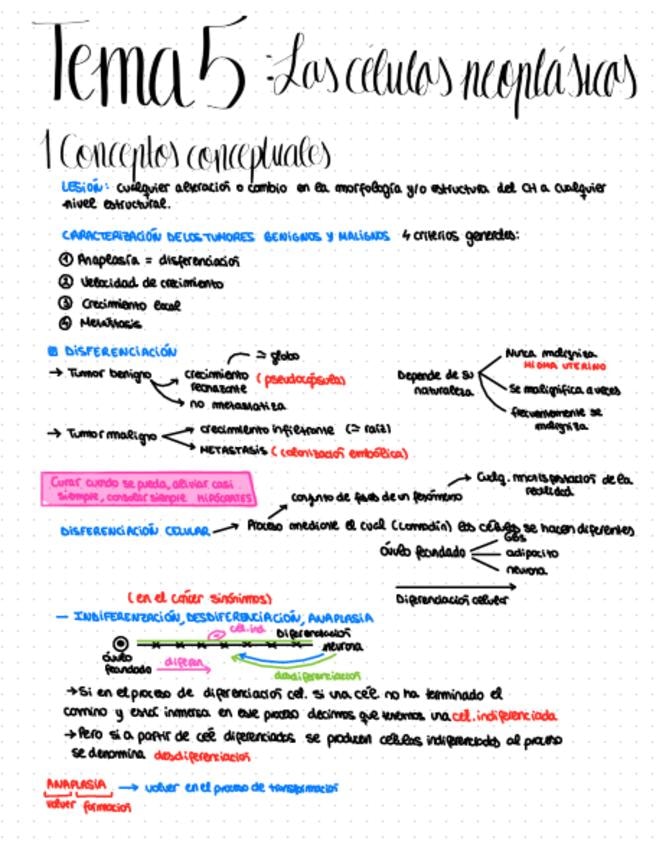 Tema 5: Las células neoplásicas
1 Conceptos conceptuales
LESIÓN: cualquier alteración o cambio en la morfología y/o estructura del CH a cualquier
nivel estructural.
CARACTERIZACIÓN DE LOS TUMORES BENIGNOS Y MALIGNOS 4 criterios generales:
① Anaplasía = disferenciación
② Velocidad de crecimiento
③ Crecimiento local
④ Metástasis
DISFERENCIACIÓN
→ Tumor benigno
crecimiento rechazante (pseudocápsula)
≃ globo
no metastatiza
Depende de su naturaleza
Nunca maligniza
MIOMA UTERINO
se malignifica a veces
frecuentemente se maligniza
→ Tumor maligno
crecimiento infiltrante (≃ raíz)
METASTASIS (colonización embólica)
Curar cuando se pueda, aliviar casi
siempre, consolar siempre HIPÓCRATES
conjunto de fases de un fenómeno → Cualq. manifestación de la
realidad
DISFERENCIACIÓN CELULAR → Proceso mediante el cual (comodín) las células se hacen diferentes
óvulo fecundado
GBs
adipocito
neurona
Diferenciación celular
(en el cáncer sinónimos)
— INDIFERENZACIÓN, DESDIFERENCIACIÓN, ANAPLASIA
cel. ind. Diferenciación
óvulo fecundado
neurona
diferen.
desdiferenciación
→ Si en el proceso de diferenciación cel. si una cél no ha terminado el
camino y está inmersa en ese proceso decimos que tenemos una cel. indiferenciada
→ Pero si a partir de cél diferenciadas se producen células indiferenciadas al proceso
se denomina desdiferenciación
ANAPLASIA → volver en el proceso de transformación
volver formación